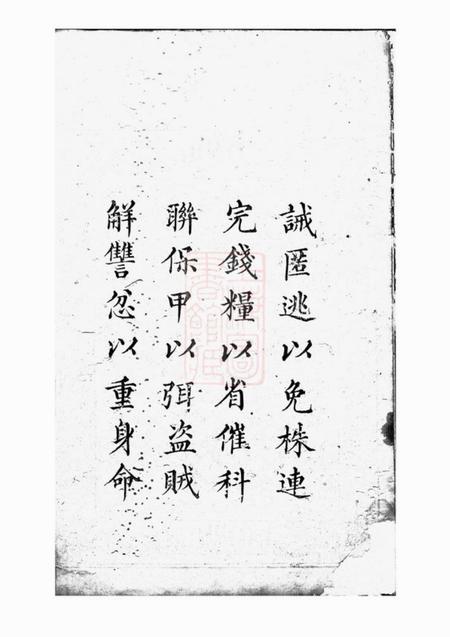 誡匿逃以免株連
完錢糧以省催科
聯保甲以弭盜賊
解讐忿以重身命